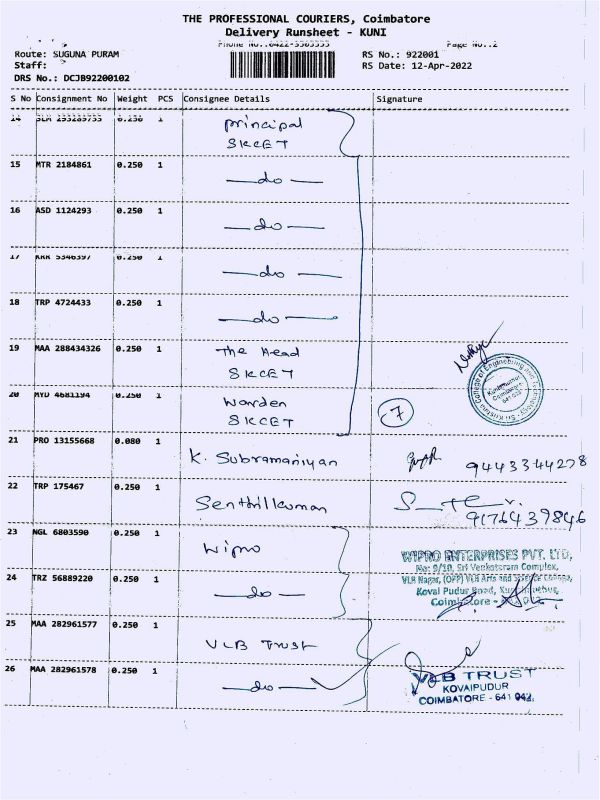 THE PROFESSIONAL COURIERS, Coimbatore
Delivery Runsheet - KUNI
Phone No.:0422-3303333 Page No.:2
Route: SUGUNA PURAM RS No.: 922001
Staff: RS Date: 12-Apr-2022
DRS No.: DCJB92200102
S No Consignment No Weight PCS Consignee Details Signature
14 0.250 1 Principal
SKCET
15 MTR 2184861 0.250 1 —do—
16 ASD 1124293 0.250 1 —do—
17 KRR 5346397 0.250 1 —do—
18 TRP 4724433 0.250 1 —do—
19 MAA 288434326 0.250 1 The Head
SKCET
20 MYD 4681194 0.250 1 Warden
SKCET
7
21 PRO 13155668 0.080 1 K. Subramaniyan 9443344278
22 TRP 175467 0.250 1 Senthilkuman
9176439846
23 NGL 6803590 0.250 1 Wipro
WIPRO ENTERPRISES PVT. LTD,
No: 9/10, Sri Venkateram Complex,
24 TRZ 56889220 0.250 1 —do—
VLB Nagar, (OPP) VLB Arts and Science College,
Kovai Pudur Road,
Coimbatore -
25 MAA 282961577 0.250 1 VLB Trust
26 MAA 282961578 0.250 1 —do—
VLB TRUST
KOVAIPUDUR
COIMBATORE - 641 042.